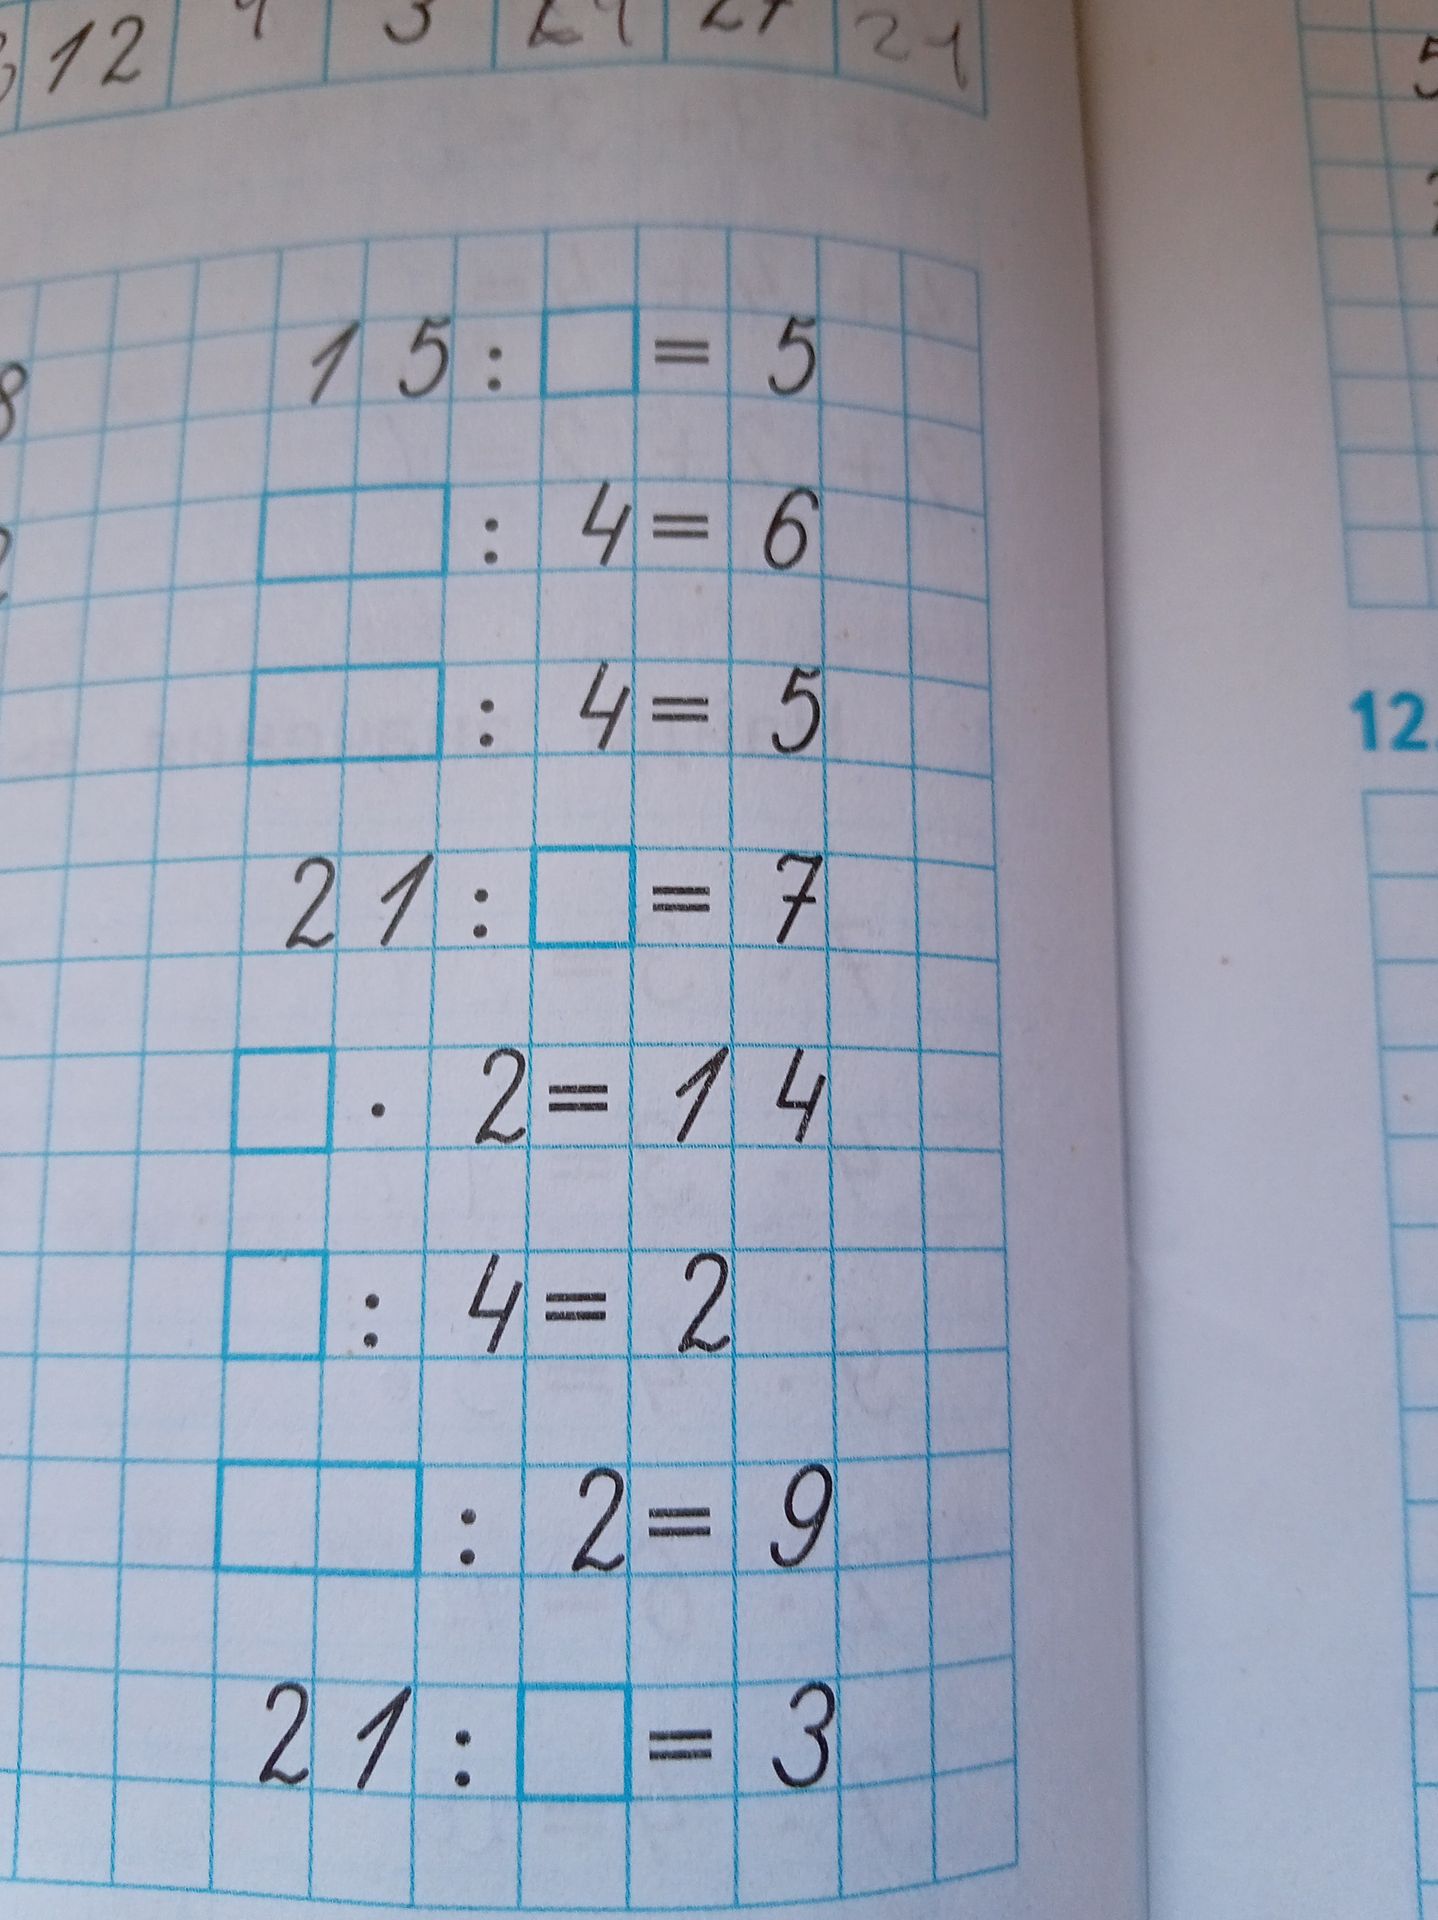 12 3 24 27 21
15 : □ = 5
□□ : 4 = 6
□□ : 4 = 5
21 : □ = 7
□ · 2 = 14
□ : 4 = 2
□□ : 2 = 9
21 : □ = 3
8
5
12.